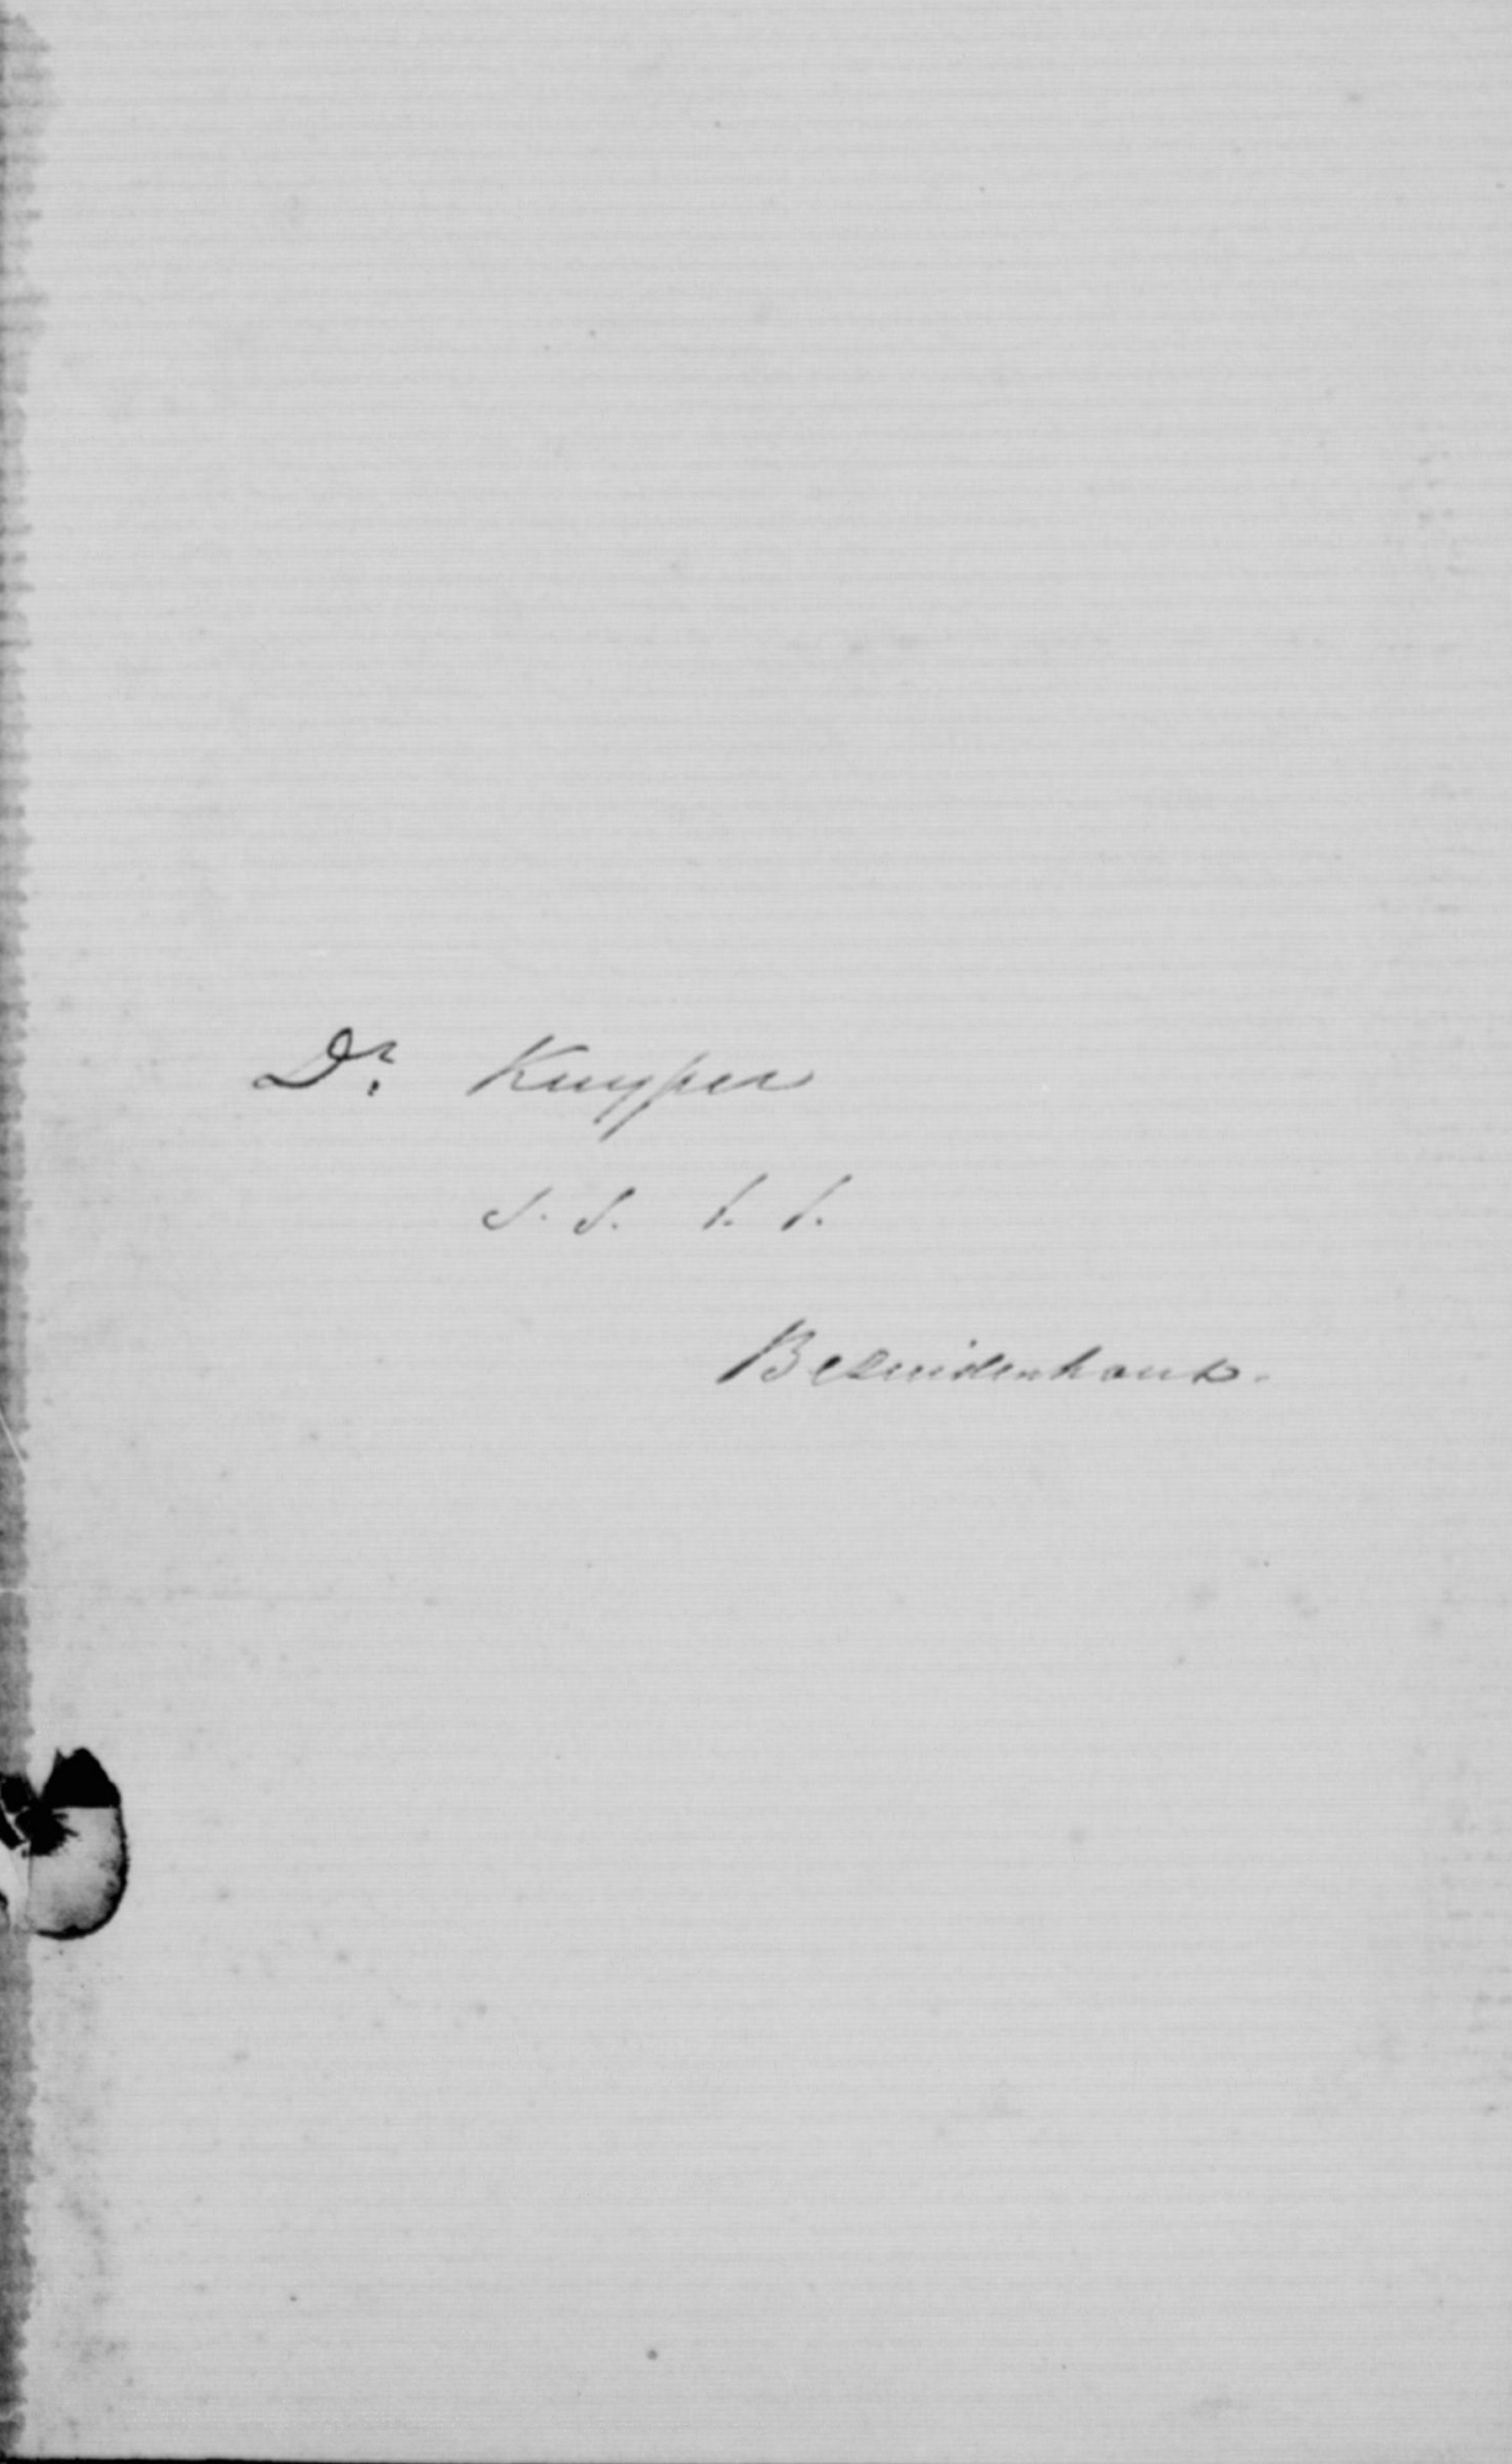 Dr. Kuyper
S. S. t. t.
Bezuidenhout.